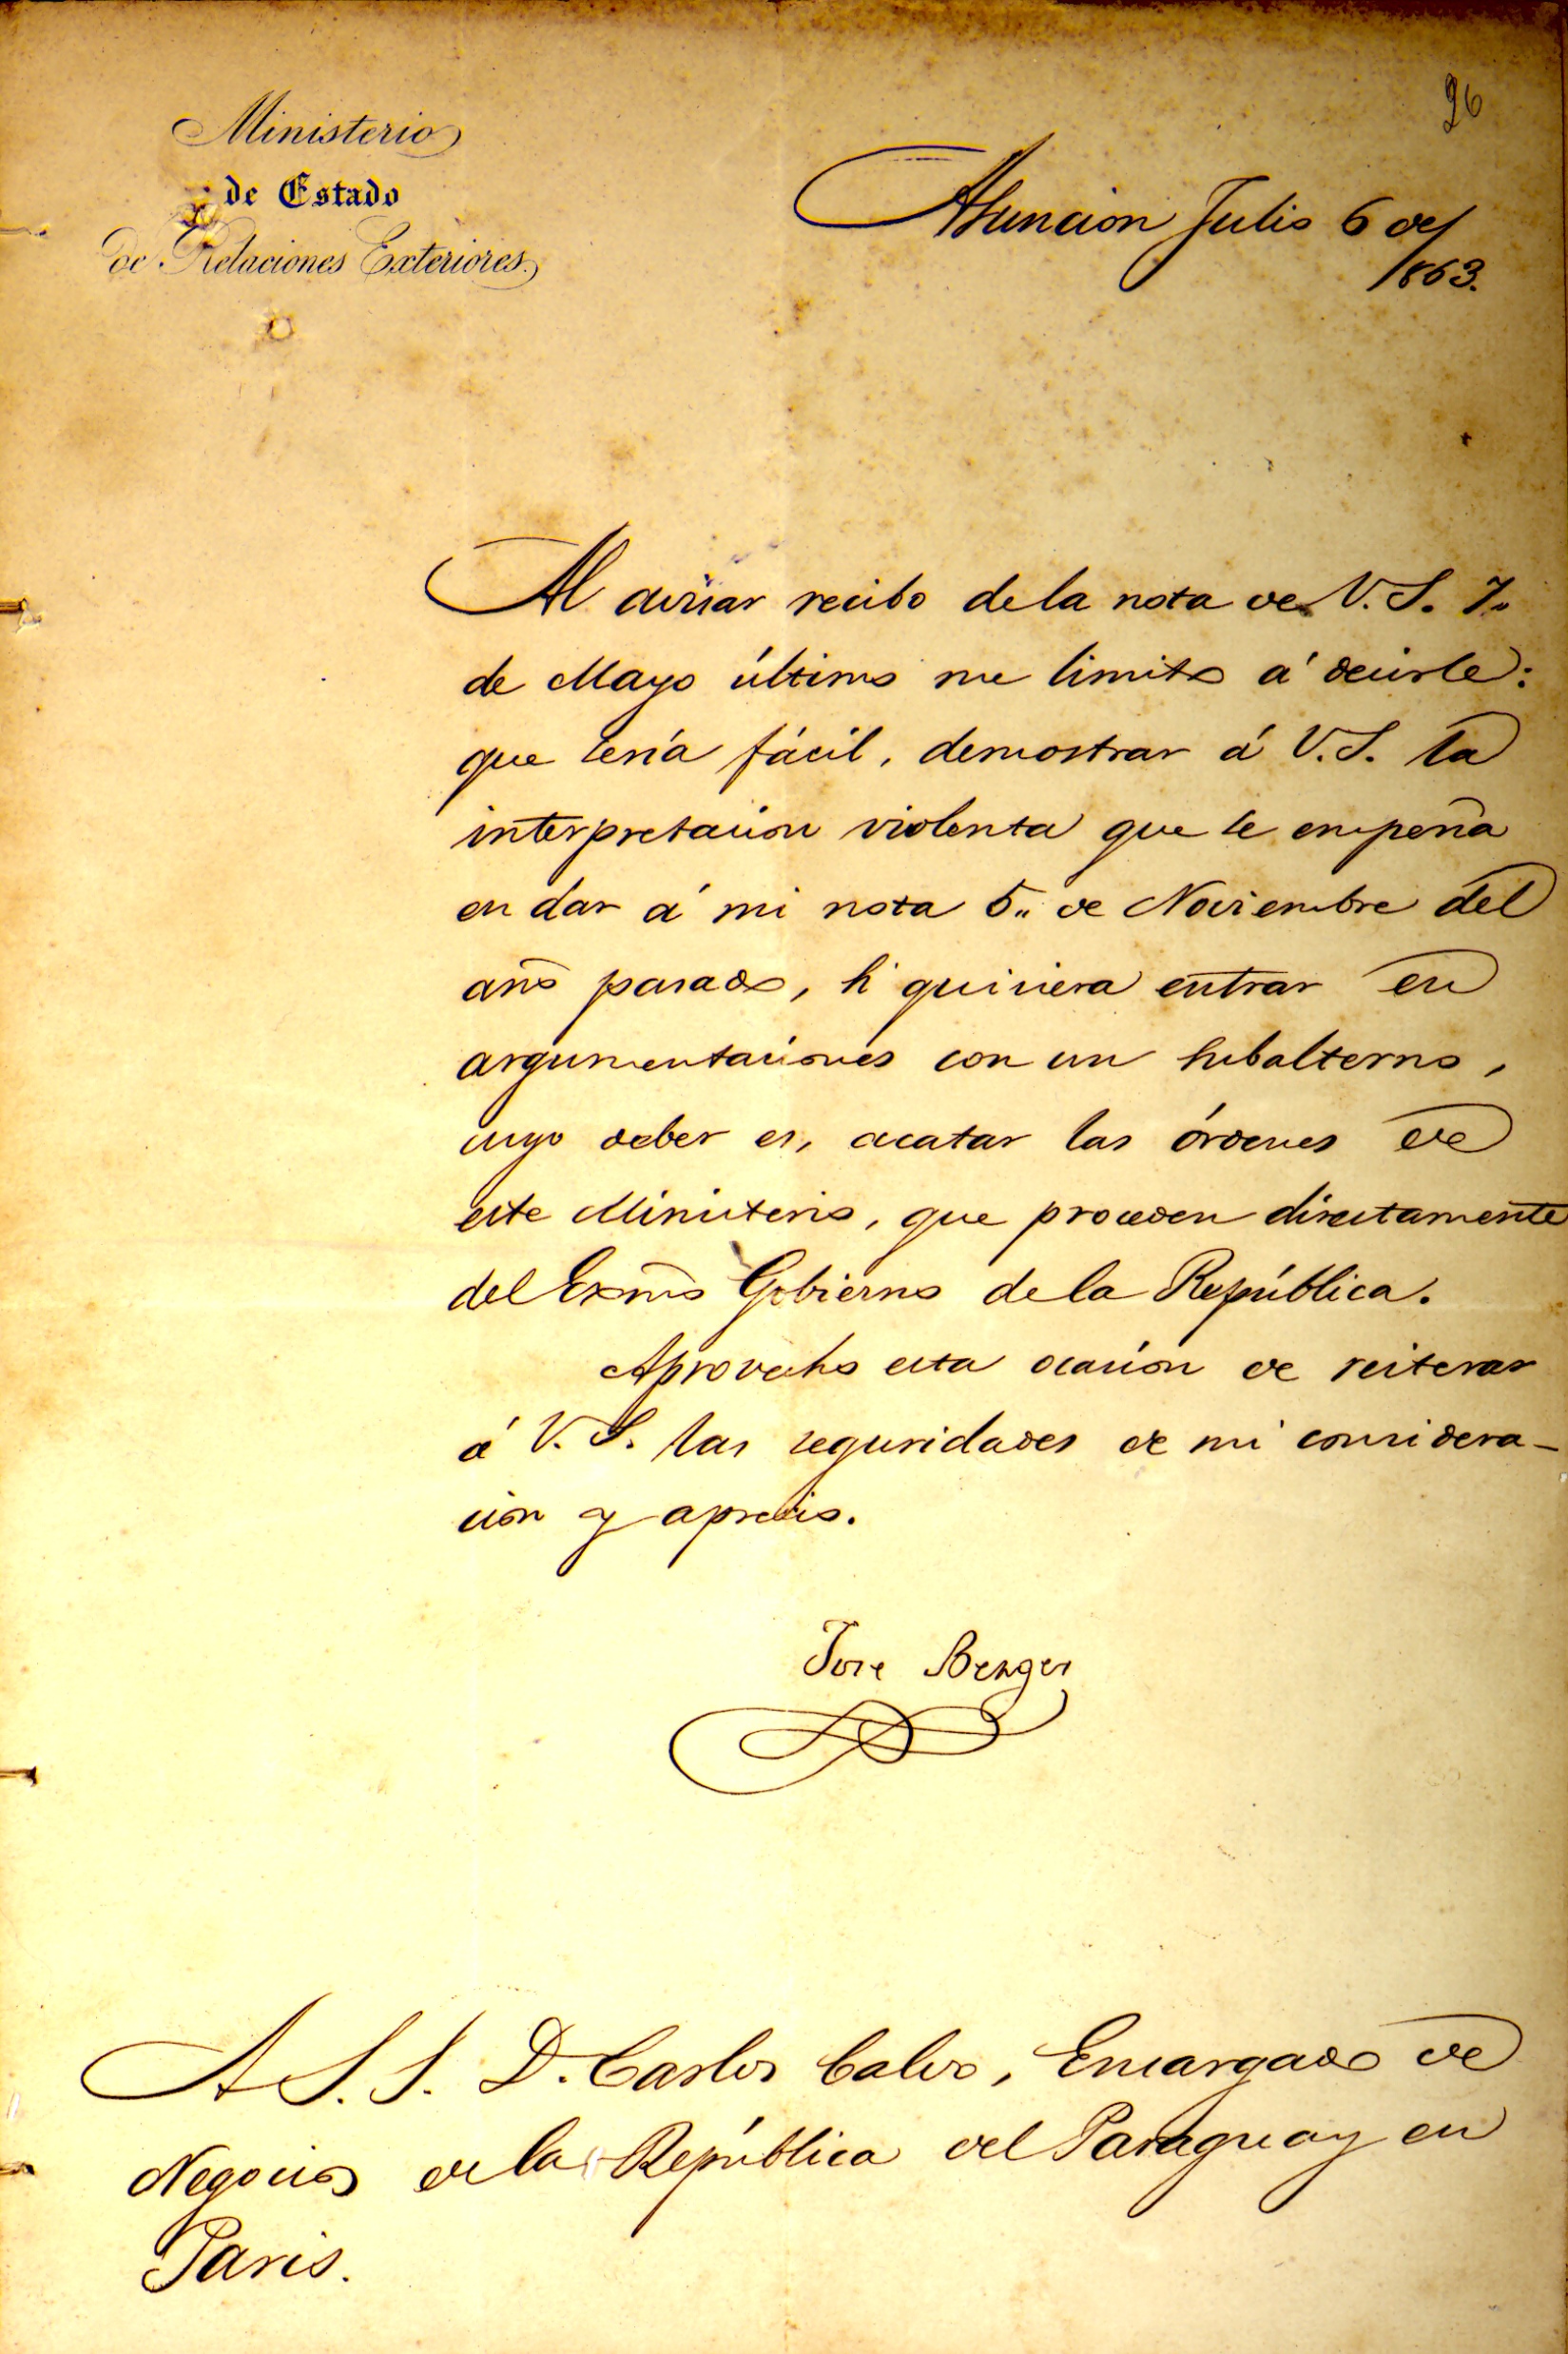 26
Ministerio
de Estado
de Relaciones Exteriores.
Asuncion Julio 6 de
1863.
Al avisar recibo de la nota de V. S. 7„
de Mayo último me limito á decirle:
que sería fácil, demostrar á V. S. la
interpretacion violenta que se empeña
en dar á mi nota 5„ de Noviembre del
año pasado, si quisiera entrar en
argumentaciones con un subalterno,
cuyo deber es, acatar las órdenes de
este Ministerio, que proceden directamente
del Exmo Gobierno de la República.
Aprovecho esta ocasión de reiterar
á V. S. las seguridades de mi considera-
ción y aprecio.
Jose Berges
A S. S. D. Carlos Calvo, Encargado de
Negocios de la República del Paraguay en
Paris.